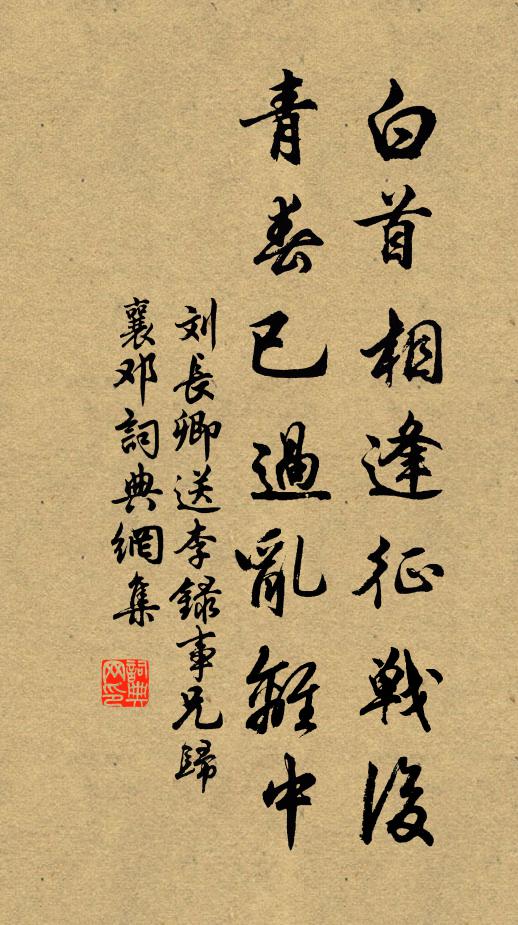 白首相逢征戰後
青春已過亂離中
刘長卿送李録事兄歸
襄邓詞典網集
詞典网印